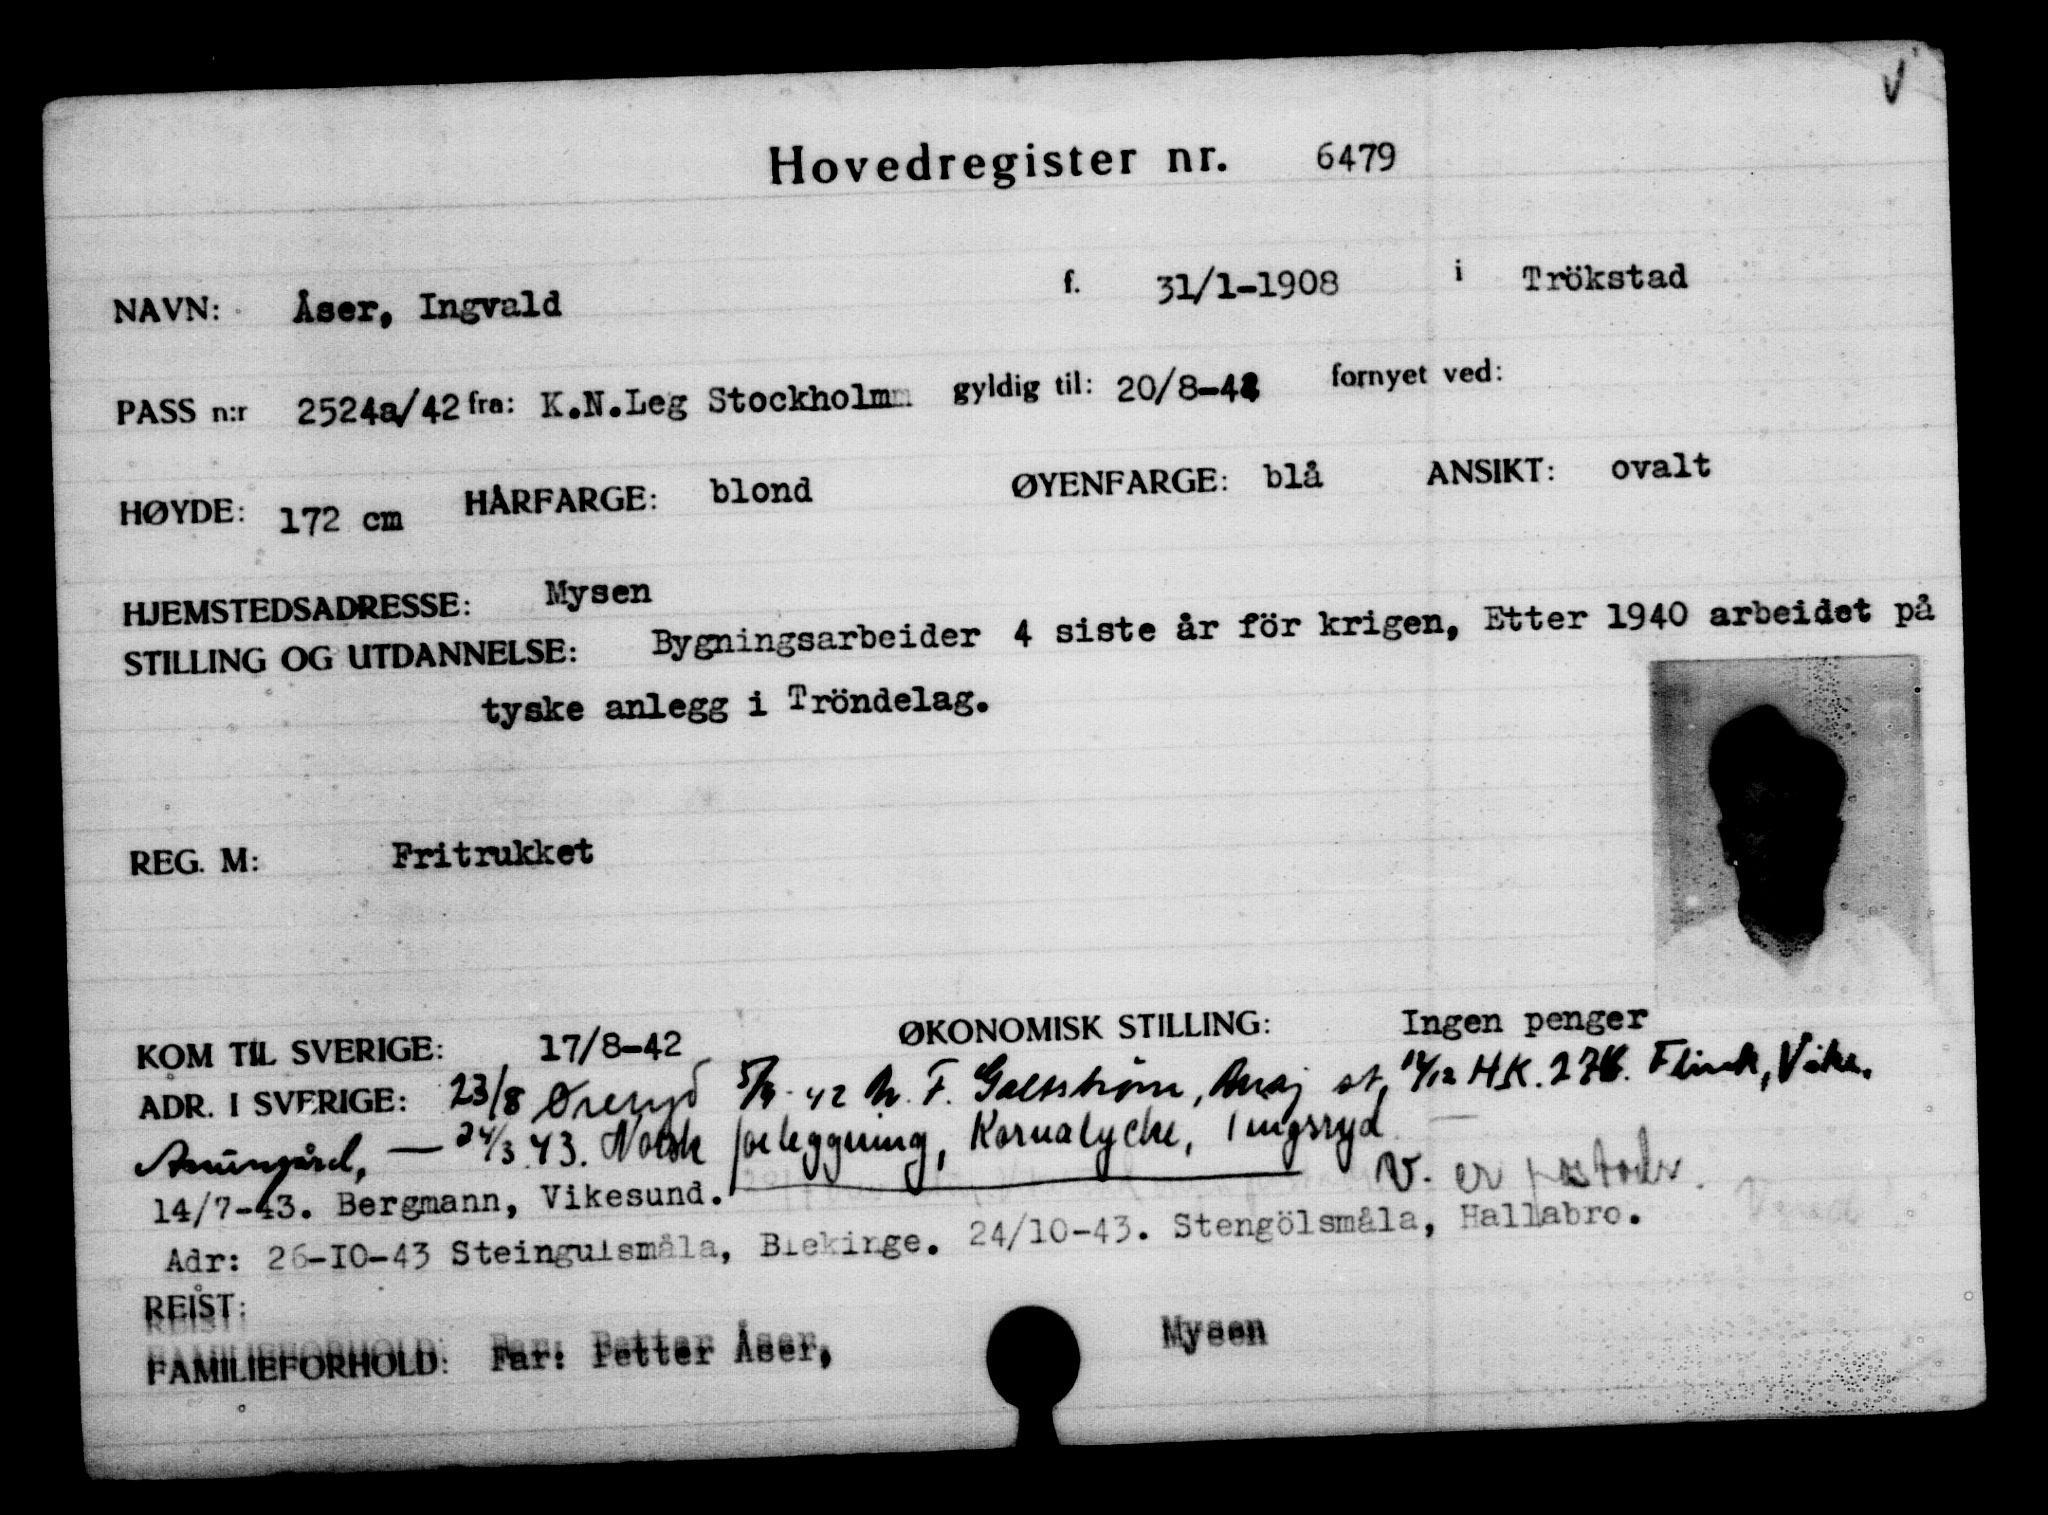 V
Hovedregister nr. 6479
NAVN: Åser, Ingvald f. 31/1-1908 i Trökstad
PASS n:r 2524a/42 fra: K.N.Leg Stockholm gyldig til: 20/8-4 fornyet ved:
HØYDE: 172 cm HÅRFARGE: blond ØYENFARGE: blå ANSIKT: ovalt
HJEMSTEDSADRESSE: Mysen
STILLING OG UTDANNELSE: Bygningsarbeider 4 siste år för krigen, Etter 1940 arbeidet på
tyske anlegg i Tröndelag.
REG. M: Fritrukket
KOM TIL SVERIGE: 17/8-42 ØKONOMISK STILLING: Ingen penger
ADR. I SVERIGE: 23/8 Öreryd 42 F. st, H.K. Flink, Vika.
24/3 43. Norsk forleggning, Korralycke, Tingsryd
V. er
14/7-43. Bergmann, Vikesund.
Adr: 26-10-43 Steingulsmåla, Blekinge. 24/10-43. Stengölsmåla, Hallabro.
REIST:
FAMILIEFORHOLD: Far: Petter Åser, Mysen